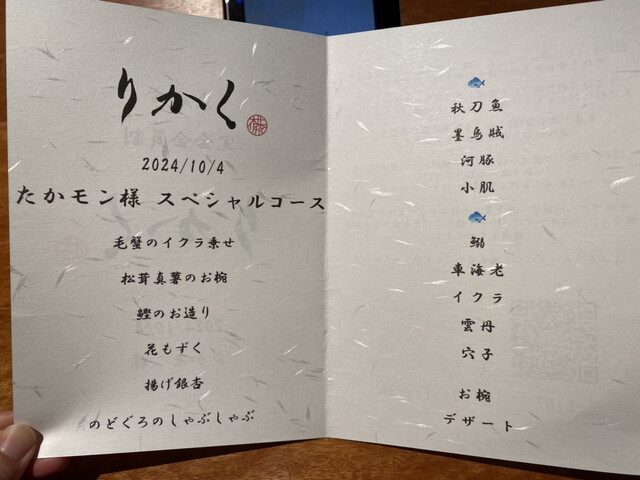 りかく
2024/10/4
たかモン様 スペシャルコース
毛蟹のイクラ乗せ
松茸真薯のお椀
鰹のお造り
花もずく
揚げ銀杏
のどぐろのしゃぶしゃぶ
秋刀魚
墨烏賊
河豚
小肌
鰯
車海老
イクラ
雲丹
穴子
お椀
デザート